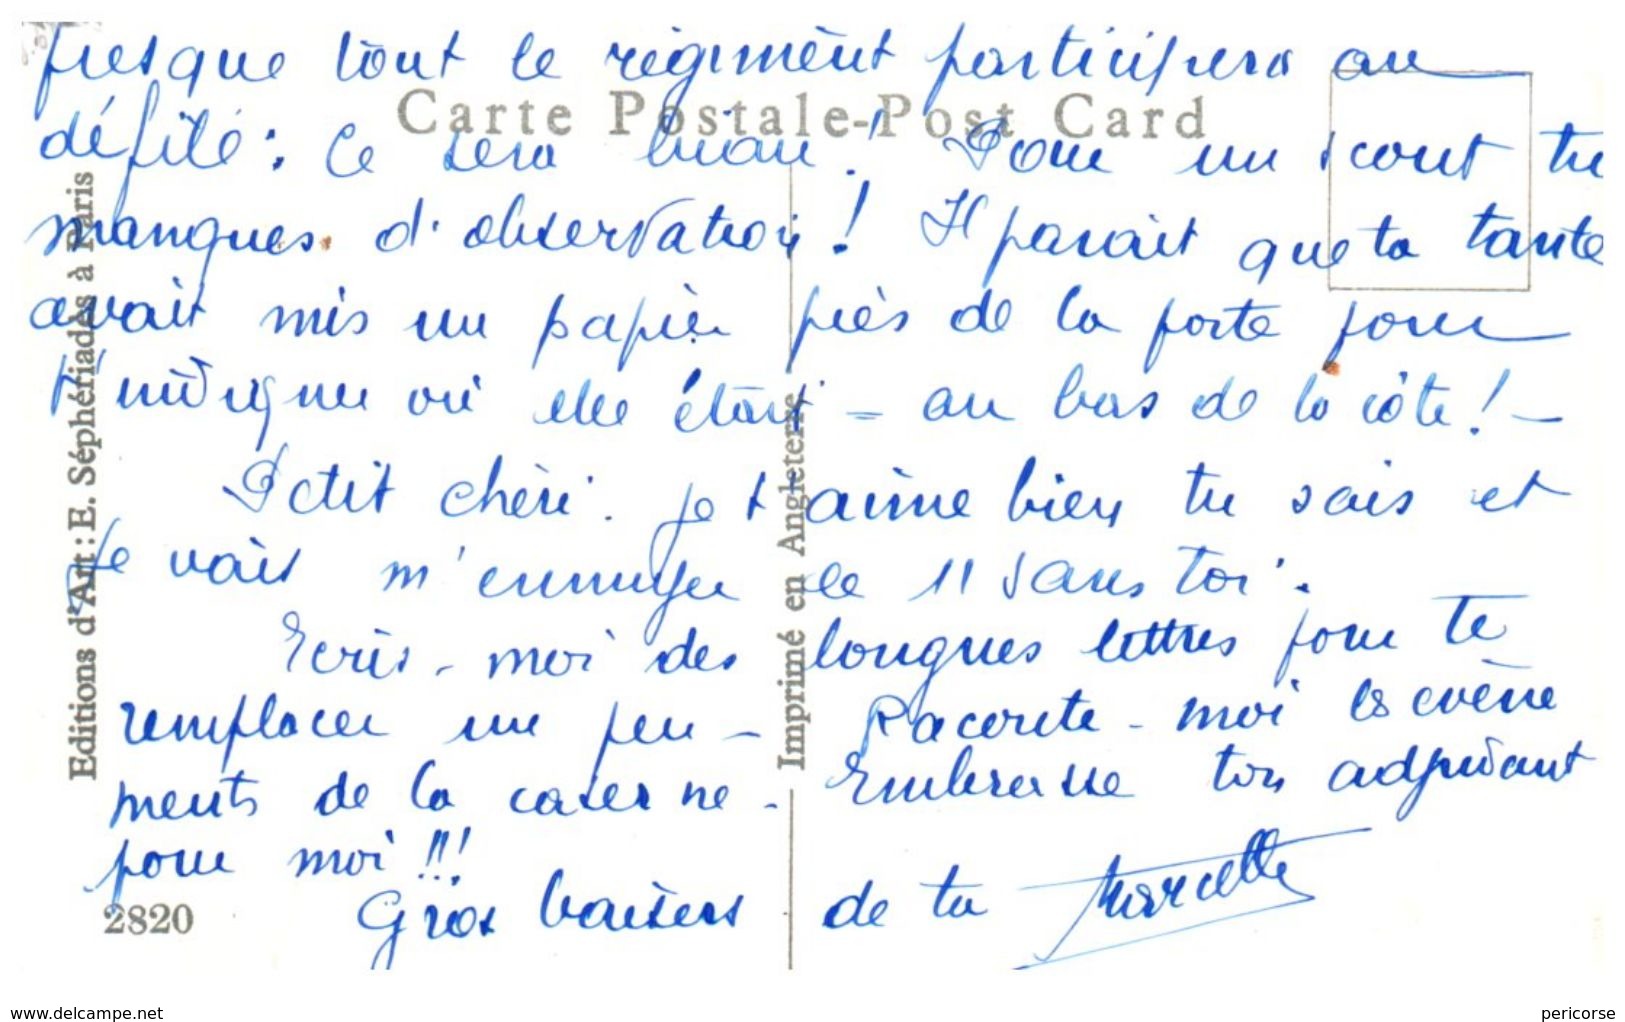 presque tout le régiment participera au
Carte Postale-Post Card
défilé : Ce sera beau ! Pour un scout tu
manques d'observation ! Il parait que ta tante
avait mis un papier près de la porte pour
t'indiquer où elle était - au bas de la côte ! -
Petit chéri. je t'aime bien tu sais et
je vais m'ennuyer le 11 sans toi.
Ecris-moi des longues lettres pour te
remplacer un peu - Raconte-moi les évène
ments de la caserne - Embrasse ton adjudant
pour moi !!!
Gros baisers de ta Marcelle
2820
Editions d'Art : E. Séphériadès à Paris
Imprimé en Angleterre
www.delcampe.net
pericorse